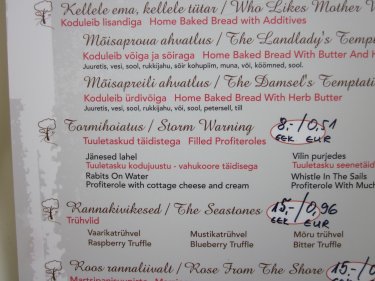 Kellele ema, kellele tütar / Who Likes Mother
Koduleib lisandiga Home Baked Bread with Additives
Mõisaproua ahvatlus / The Landlady's
Koduleib võiga ja sõiraga Home Baked Bread With Butter And
Juuretis, vesi, sool, rukkijahu, sõir kohupiim, muna, või, köömned, sool.
Mõisapreili ahvatlus / The Damsel's
Koduleib ürdivõiga Home Baked Bread With Herb Butter
Juuretis, vesi, sool, rukkijahu, või, sool, petersell, till
Tormihoiatus / Storm Warning 8.-/0,51
Tuuletaskud täidistega Filled Profiteroles EEK EUR
Jänesed lahel Vilin purjedes
Tuuletasku kodujuustu - vahukoore täidisega Tuuletasku
Rabits On Water Whistle In The Sails
Profiterole with cottage cheese and cream Profiterole With
Rannakivikesed / The Seastones 15,-/0,96
Trühvlid EEK EUR
Vaarikatrühvel Mustikatrühvel Mõru trühvel
Raspberry Truffle Blueberry Truffle Bitter Truffle
Roos rannaliivalt / Rose From The Shore 15,-/0